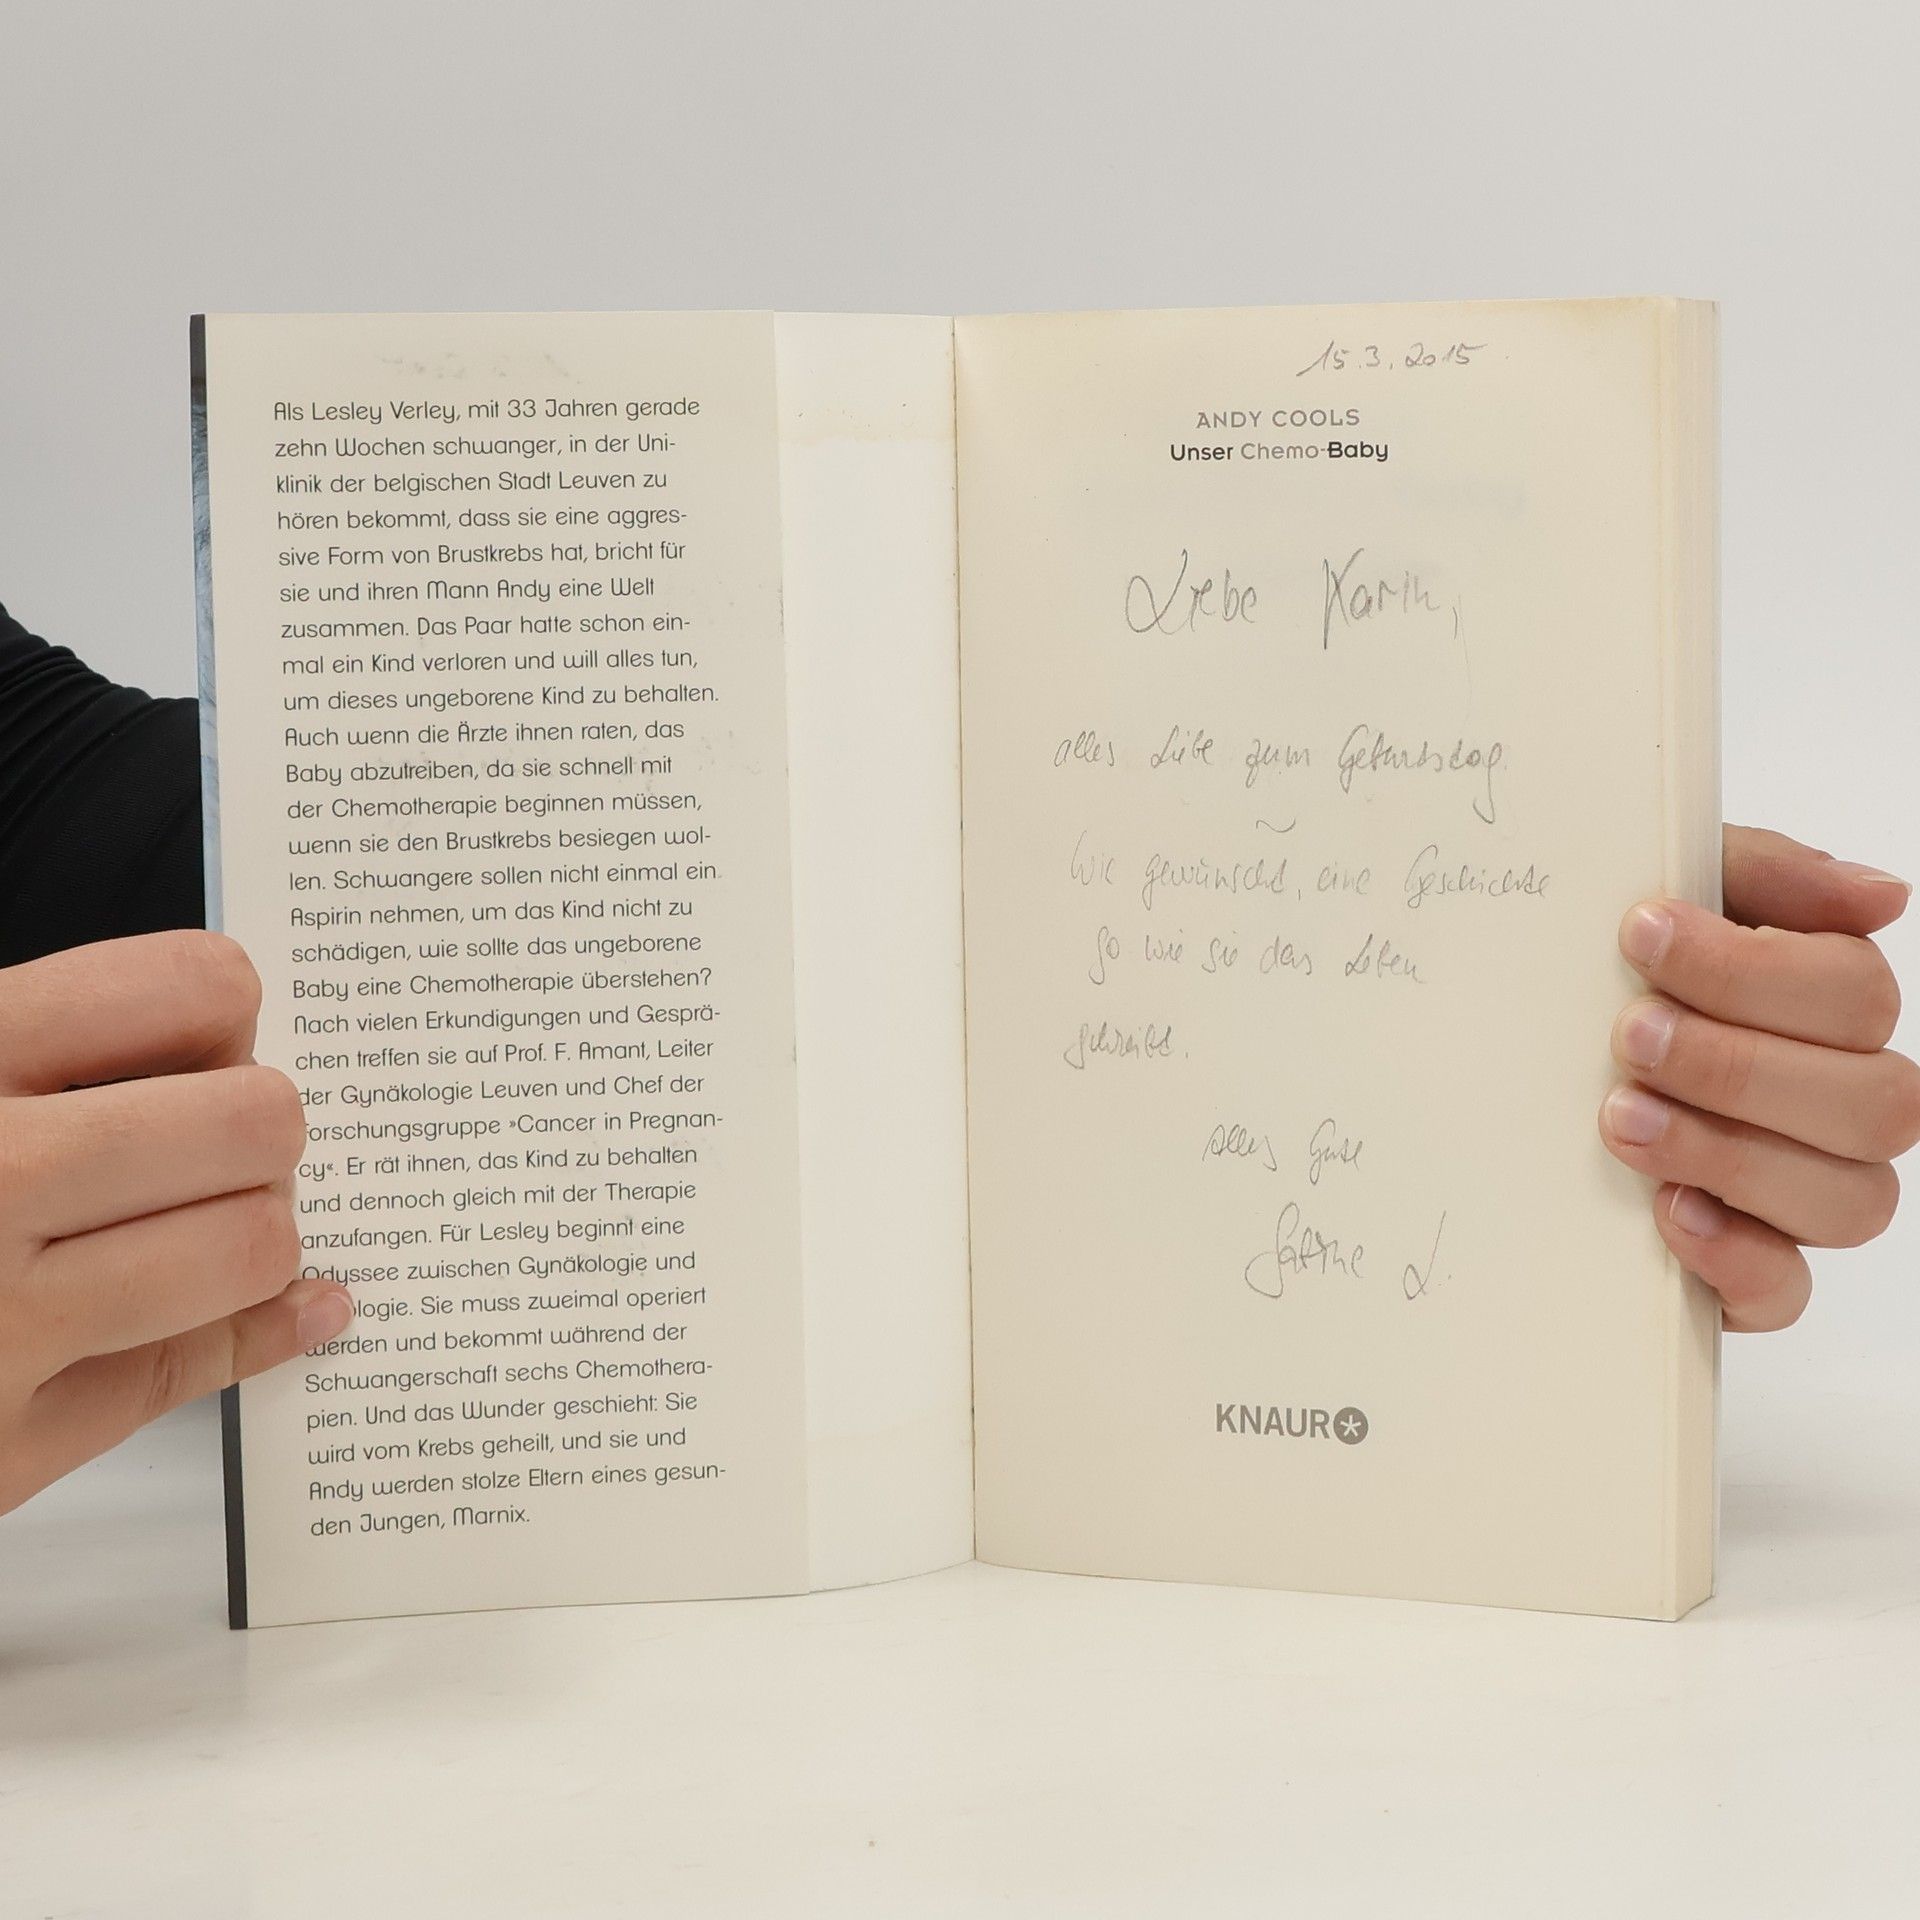 Als Lesley Verley, mit 33 Jahren gerade
zehn Wochen schwanger, in der Uni-
klinik der belgischen Stadt Leuven zu
hören bekommt, dass sie eine aggres-
sive Form von Brustkrebs hat, bricht für
sie und ihren Mann Andy eine Welt
zusammen. Das Paar hatte schon ein-
mal ein Kind verloren und will alles tun,
um dieses ungeborene Kind zu behalten.
Auch wenn die Ärzte ihnen raten, das
Baby abzutreiben, da sie schnell mit
der Chemotherapie beginnen müssen,
wenn sie den Brustkrebs besiegen wol-
len. Schwangere sollen nicht einmal ein
Aspirin nehmen, um das Kind nicht zu
schädigen, wie sollte das ungeborene
Baby eine Chemotherapie überstehen?
Nach vielen Erkundigungen und Gesprä-
chen treffen sie auf Prof. F. Amant, Leiter
der Gynäkologie Leuven und Chef der
Forschungsgruppe »Cancer in Pregnan-
cy«. Er rät ihnen, das Kind zu behalten
und dennoch gleich mit der Therapie
anzufangen. Für Lesley beginnt eine
Odyssee zwischen Gynäkologie und
ologie. Sie muss zweimal operiert
werden und bekommt während der
Schwangerschaft sechs Chemothera-
pien. Und das Wunder geschieht: Sie
wird vom Krebs geheilt, und sie und
Andy werden stolze Eltern eines gesun-
den Jungen, Marnix.
15.3.2015
ANDY COOLS
Unser Chemo-Baby
Liebe Karin,
alles Liebe zum Geburtstag.
~
Wie gewünscht, eine Geschichte
so wie sie das Leben
schreibt.
Alles Gute
Sabine L.
KNAUR